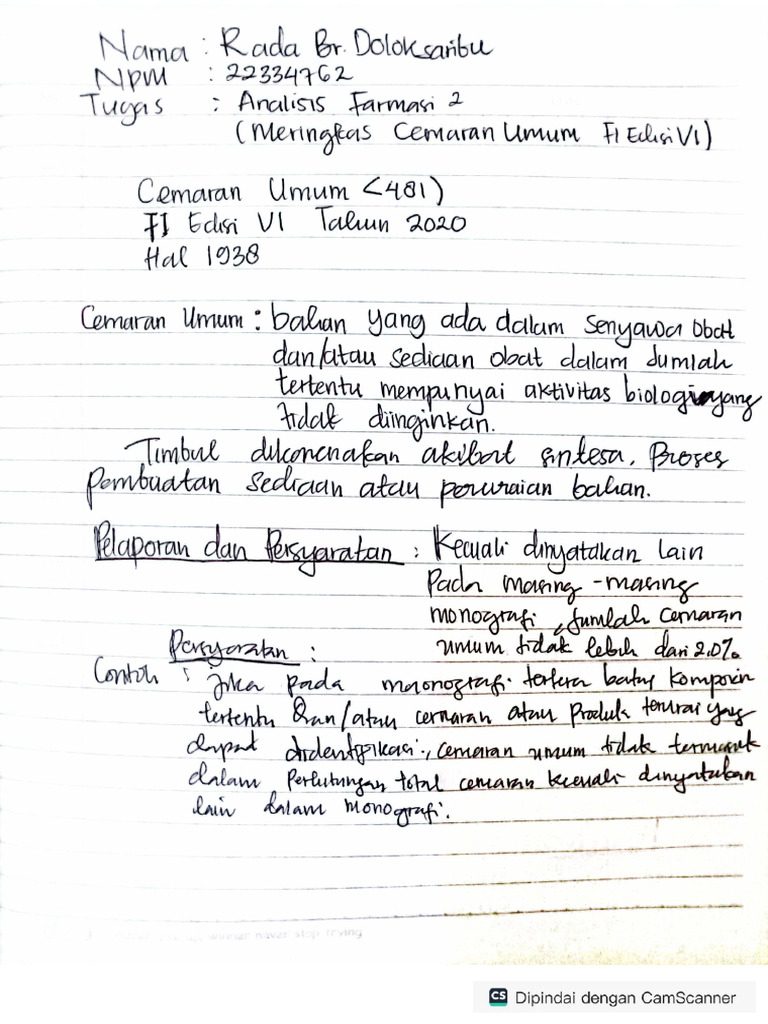 Nama : Rada Br. Doloksaribu
NPM : 22334762
Tugas : Analisis Farmasi 2
(Meringkas Cemaran Umum FI Edisi VI)
Cemaran Umum <481)
FI Edisi VI Tahun 2020
Hal 1938
Cemaran Umum : bahan yang ada dalam senyawa obat
dan/atau sediaan obat dalam jumlah
tertentu mempunyai aktivitas biologi yang
tidak diinginkan.
Timbul dikarenakan akibat sintesa, proses
pembuatan sediaan atau peruraian bahan.
Pelaporan dan Persyaratan : Kecuali dinyatakan lain
pada masing - masing
monografi, jumlah cemaran
umum tidak lebih dari 2.0%
Persyaratan :
Contoh : jika pada monografi tertera batas komponen
tertentu dan/atau cemaran atau produk terurai yang
dapat diidentifikasi, cemaran umum tidak termasuk
dalam perhitungan total cemaran kecuali dinyatakan
lain dalam monografi.
winner never stop trying
CS Dipindai dengan CamScanner